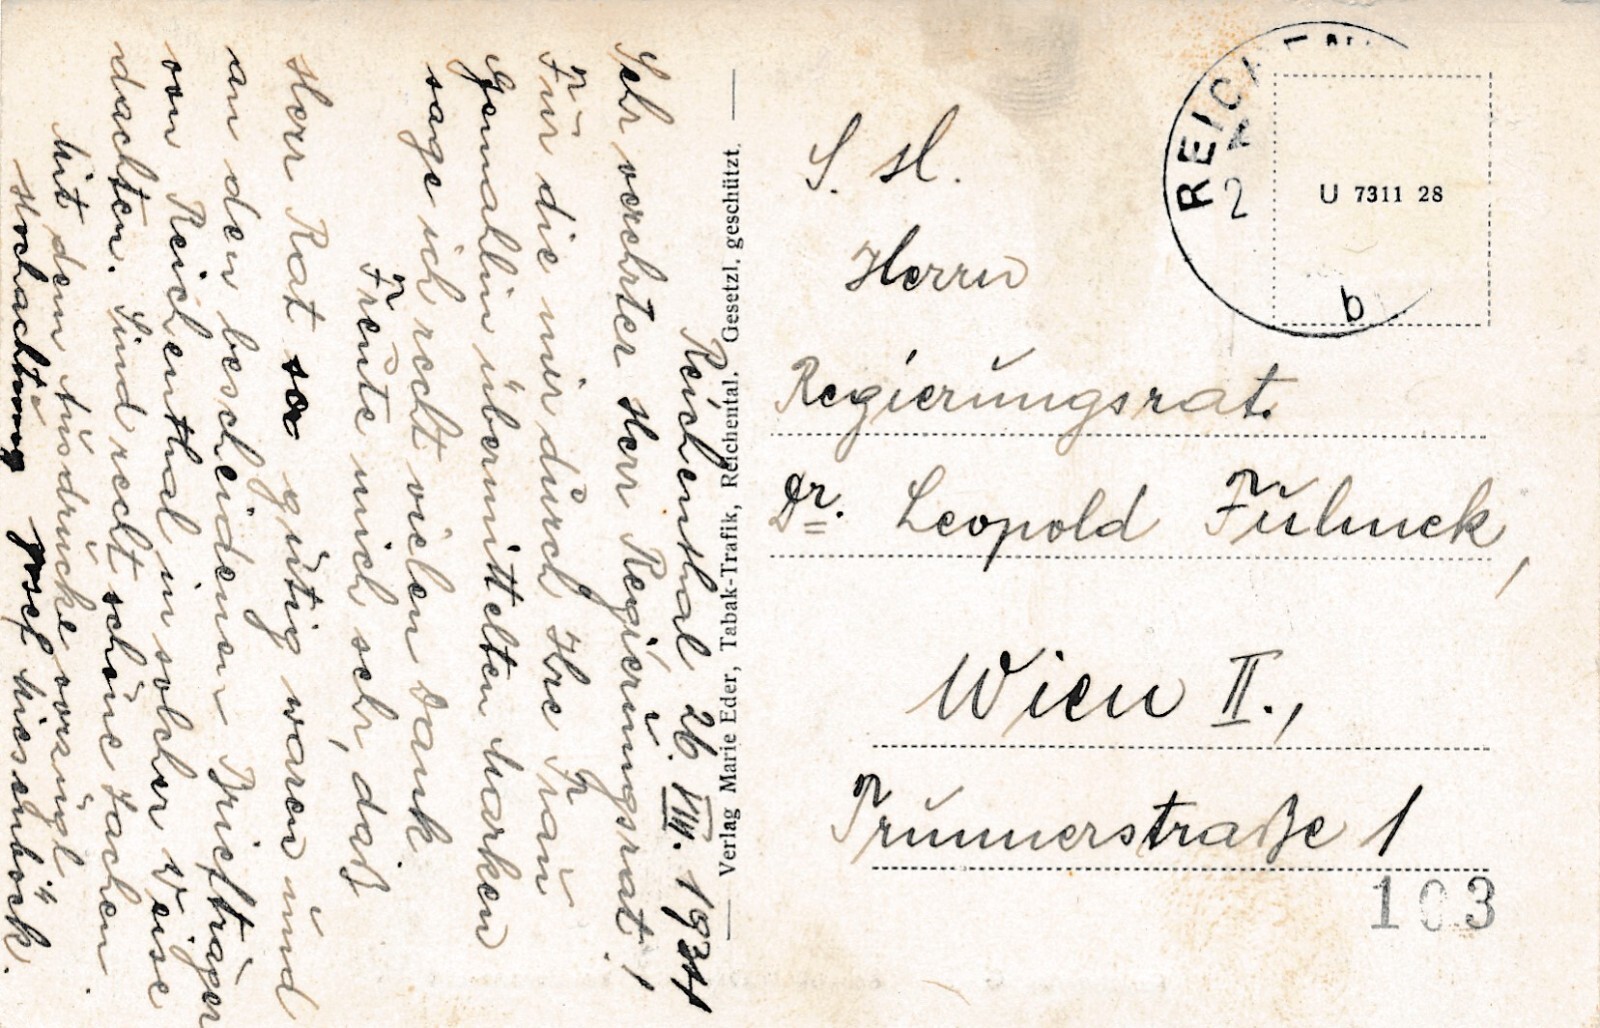 Reichenthal 26. VIII. 1934
Sehr verehrter Herr Regierungsrat!
Für die mir durch Ihre Frau
Gemahlin übermittelten Marken
sage ich recht vielen Dank
Freute mich sehr, daß
Herr Rat so gütig waren und
an den bescheidenen Briefträger
von Reichenthal in solcher Weise
dachten. Sind recht schöne Sachen.
Mit dem Ausdrucke vorzügl.
Hochachtung Josef
Verlag Marie Eder, Tabak-Trafik, Reichental. Gesetzl. geschützt.
S. H.
Herrn
Regierungsrat.
Dr. Leopold Fulmek,
Wien II.,
Trunnerstraße 1
103
U 7311 28
b